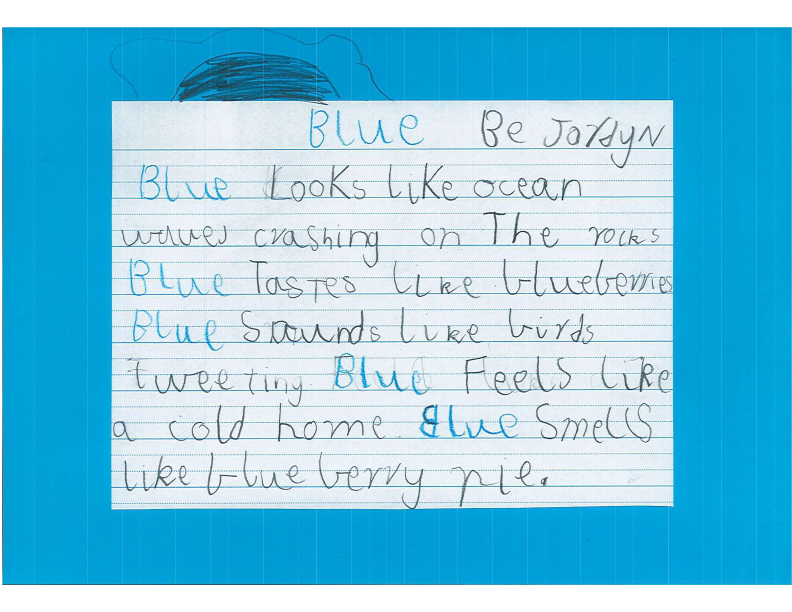 Blue Be Jordyn
Blue Looks like ocean
waves crashing on The rocks
Blue Tastes like blueberries
Blue Sounds like birds
tweeting. Blue Feels like
a cold home. Blue Smells
like blueberry pie.